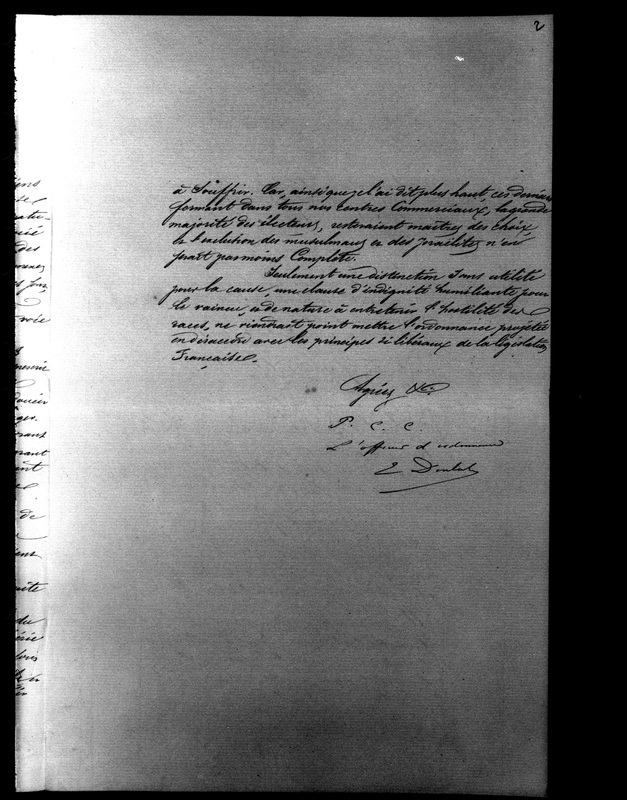 2
à Souffrir. Car, ainsi que je l'ai dit plus haut, ces derniers
formant dans tous nos Centres Commerciaux, la grande
majorité des électeurs, resteraient maîtres des choix,
et l'exclusion des musulmans et des Israélites n'en
serait pas moins Complète.
Seulement une distinction Sans utilité
pour la cause, une clause d'indignité humiliante pour
le vaincu, & de nature à entretenir l'hostilité des
races, ne viendrait point mettre l'ordonnance projetée
en désaccord avec les principes si libéraux de la législation
Française.
Agréez &c.
P. C. C.
L'officier d'ordonnance
E